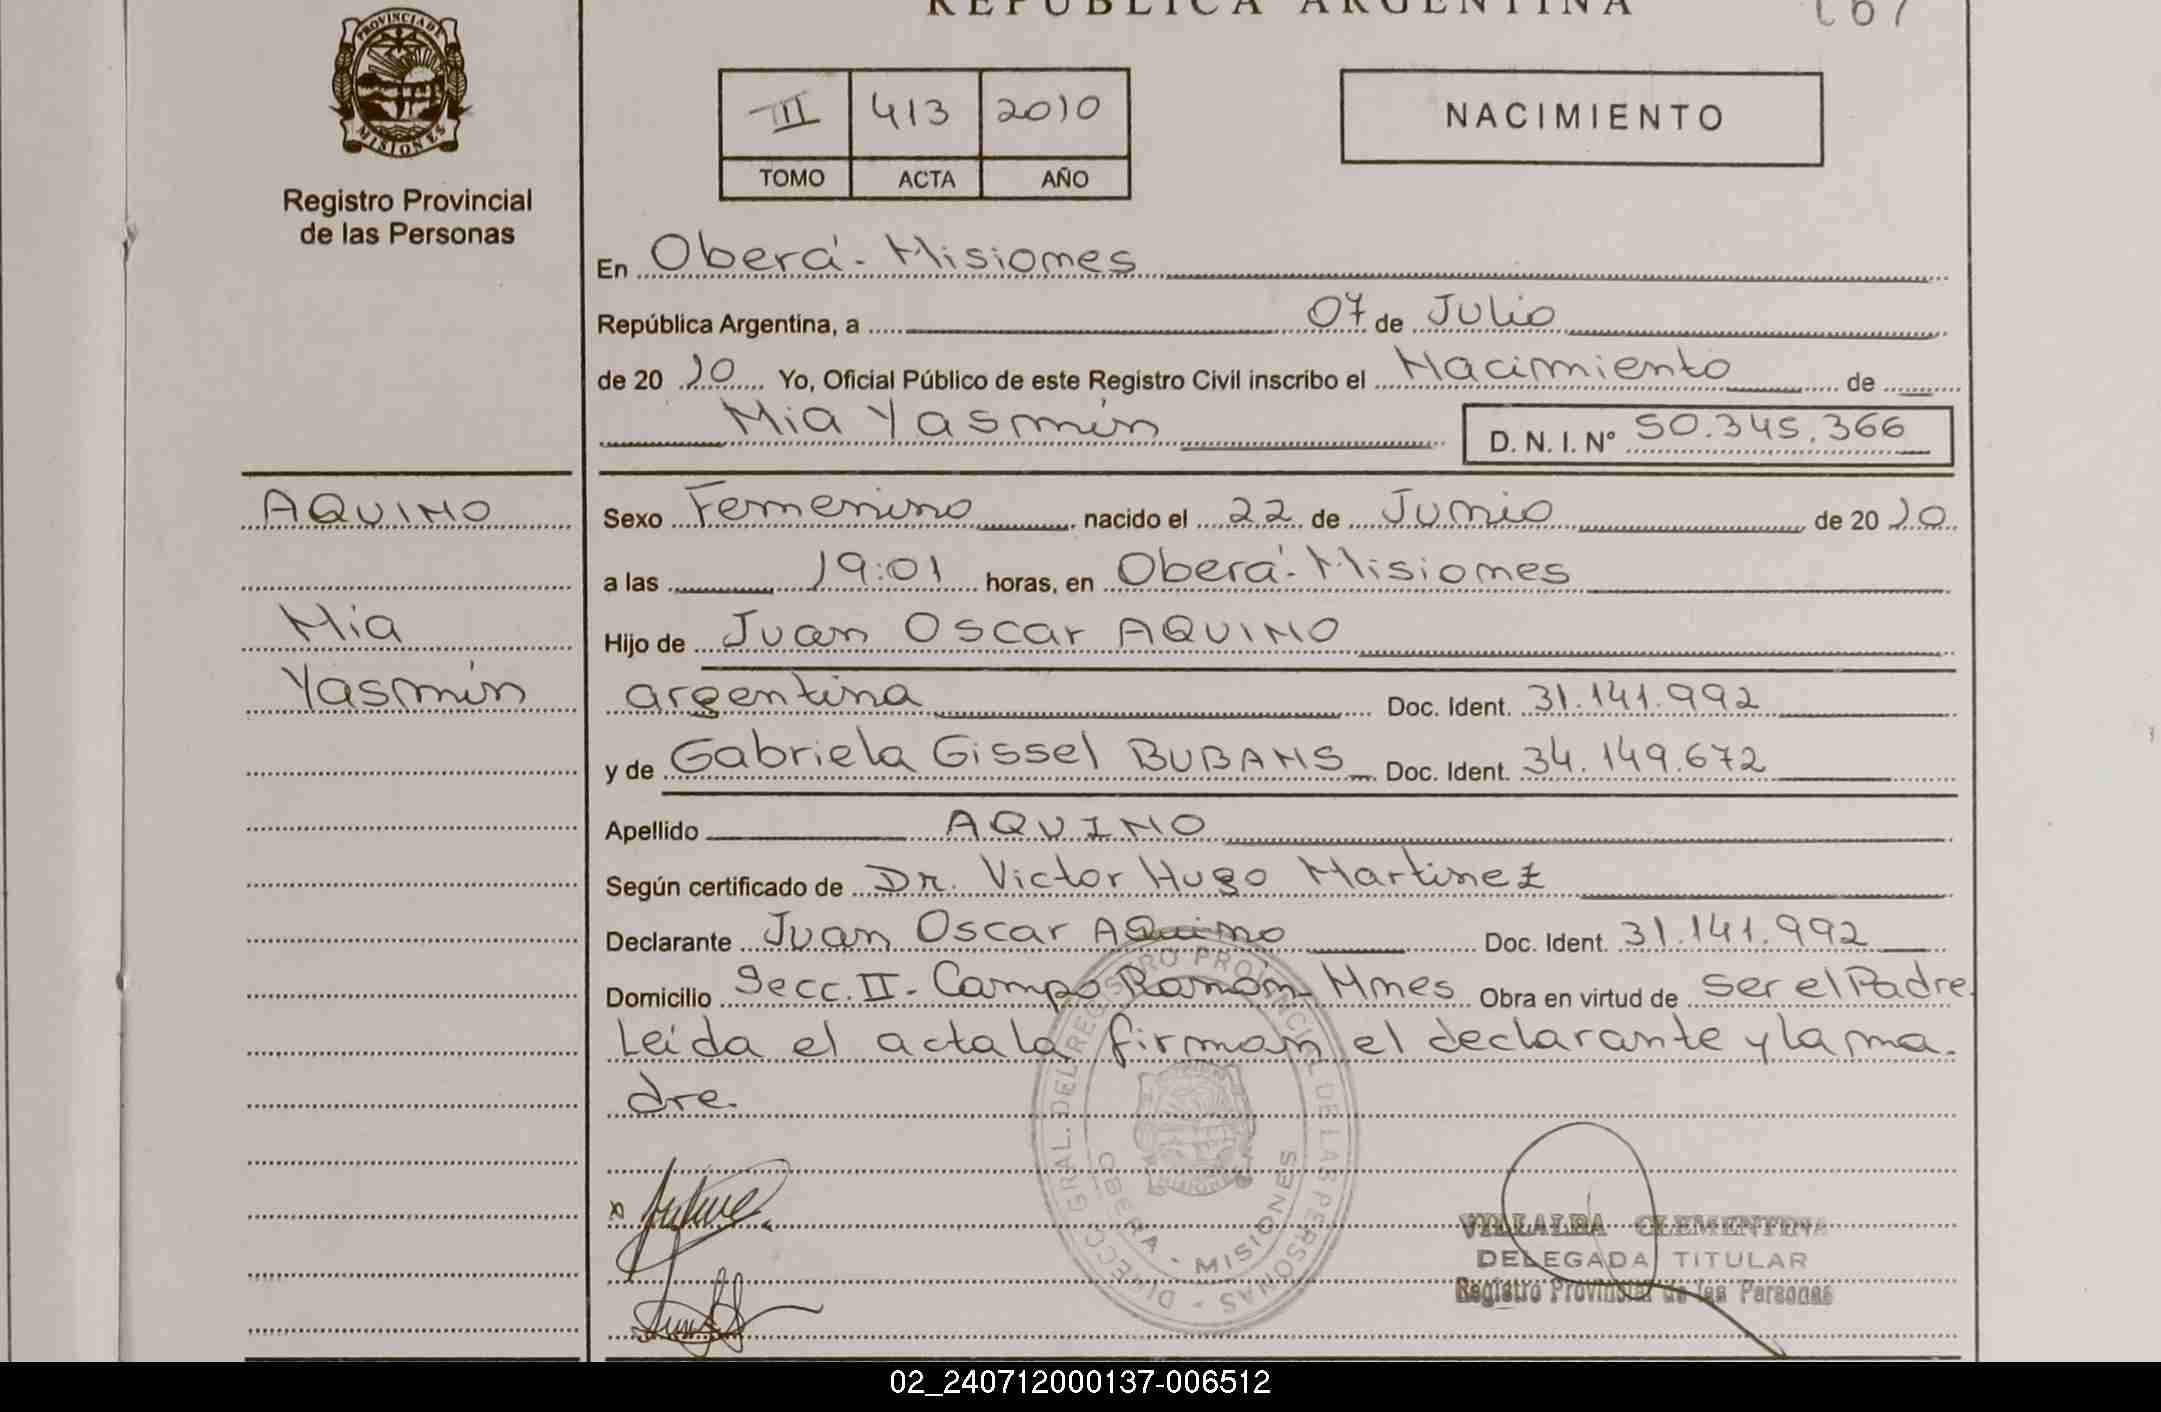 REPUBLICA ARGENTINA
PROVINCIA DE
MISIONES
Registro Provincial
de las Personas
III 413 2010
TOMO ACTA AÑO
NACIMIENTO
En Oberá - Misiones
República Argentina, a 07 de Julio
de 20 10 Yo, Oficial Público de este Registro Civil inscribo el Nacimiento de
Mia Yasmín D. N. I. N° 50.345.366
AQUINO
Mia
Yasmín
Sexo Femenino nacido el 22 de Junio de 20 10
a las 19:01 horas, en Oberá - Misiones
Hijo de Juan Oscar AQUINO
argentina Doc. Ident. 31.141.992
y de Gabriela Gissel BUBANS Doc. Ident. 34.149.672
Apellido AQUINO
Según certificado de Dr. Victor Hugo Martinez
Declarante Juan Oscar Aquino Doc. Ident. 31.141.992
Domicilio Secc. II - Campo Ramón - Mnes Obra en virtud de ser el Padre.
Leída el acta la firman el declarante y la ma-
dre.
DIRECC. GRAL. DEL REGISTRO PROVINCIAL DE LAS PERSONAS
OBERA - MISIONES
VILLALBA CLEMENTINA
DELEGADA TITULAR
Registro Provincial de las Personas
02_240712000137-006512